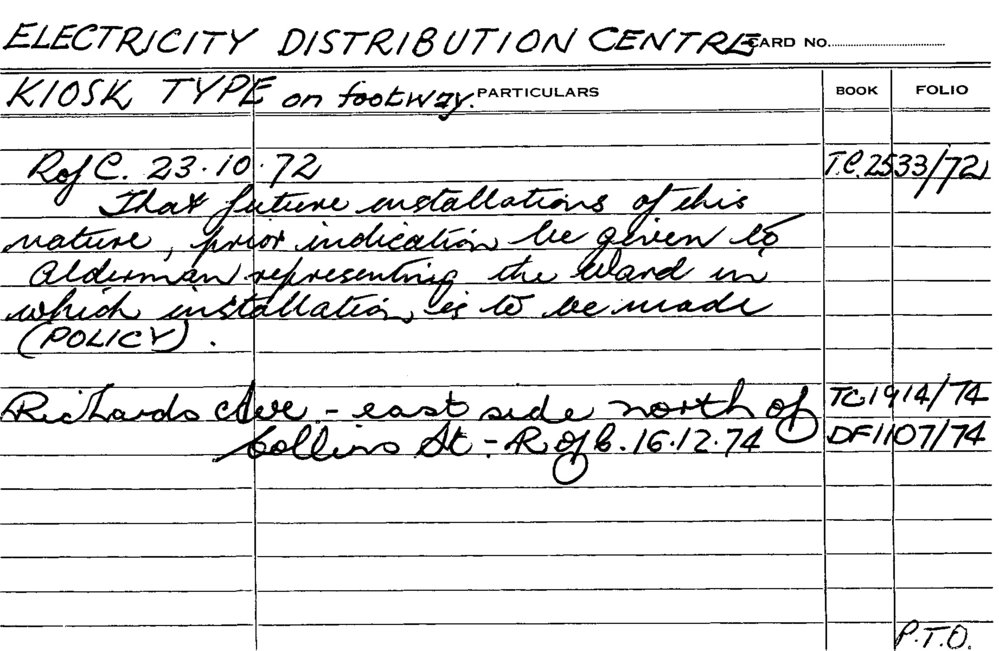 ELECTRICITY DISTRIBUTION CENTRE CARD NO.
KIOSK TYPE on footway. PARTICULARS BOOK FOLIO
R of C. 23.10.72 T.C. 2533/72
That future installations of this
nature, prior indication be given to
Alderman representing the Ward in
which installation, is to be made
(POLICY).
Richards Ave - east side north of TC1914/74
Collins St - R of C. 16.12.74 DF1107/74
P.T.O.